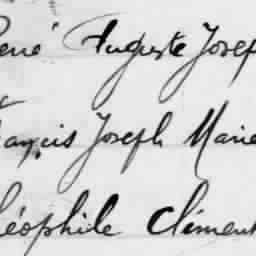 René Auguste Josep
François Joseph Marie
Théophile Clément